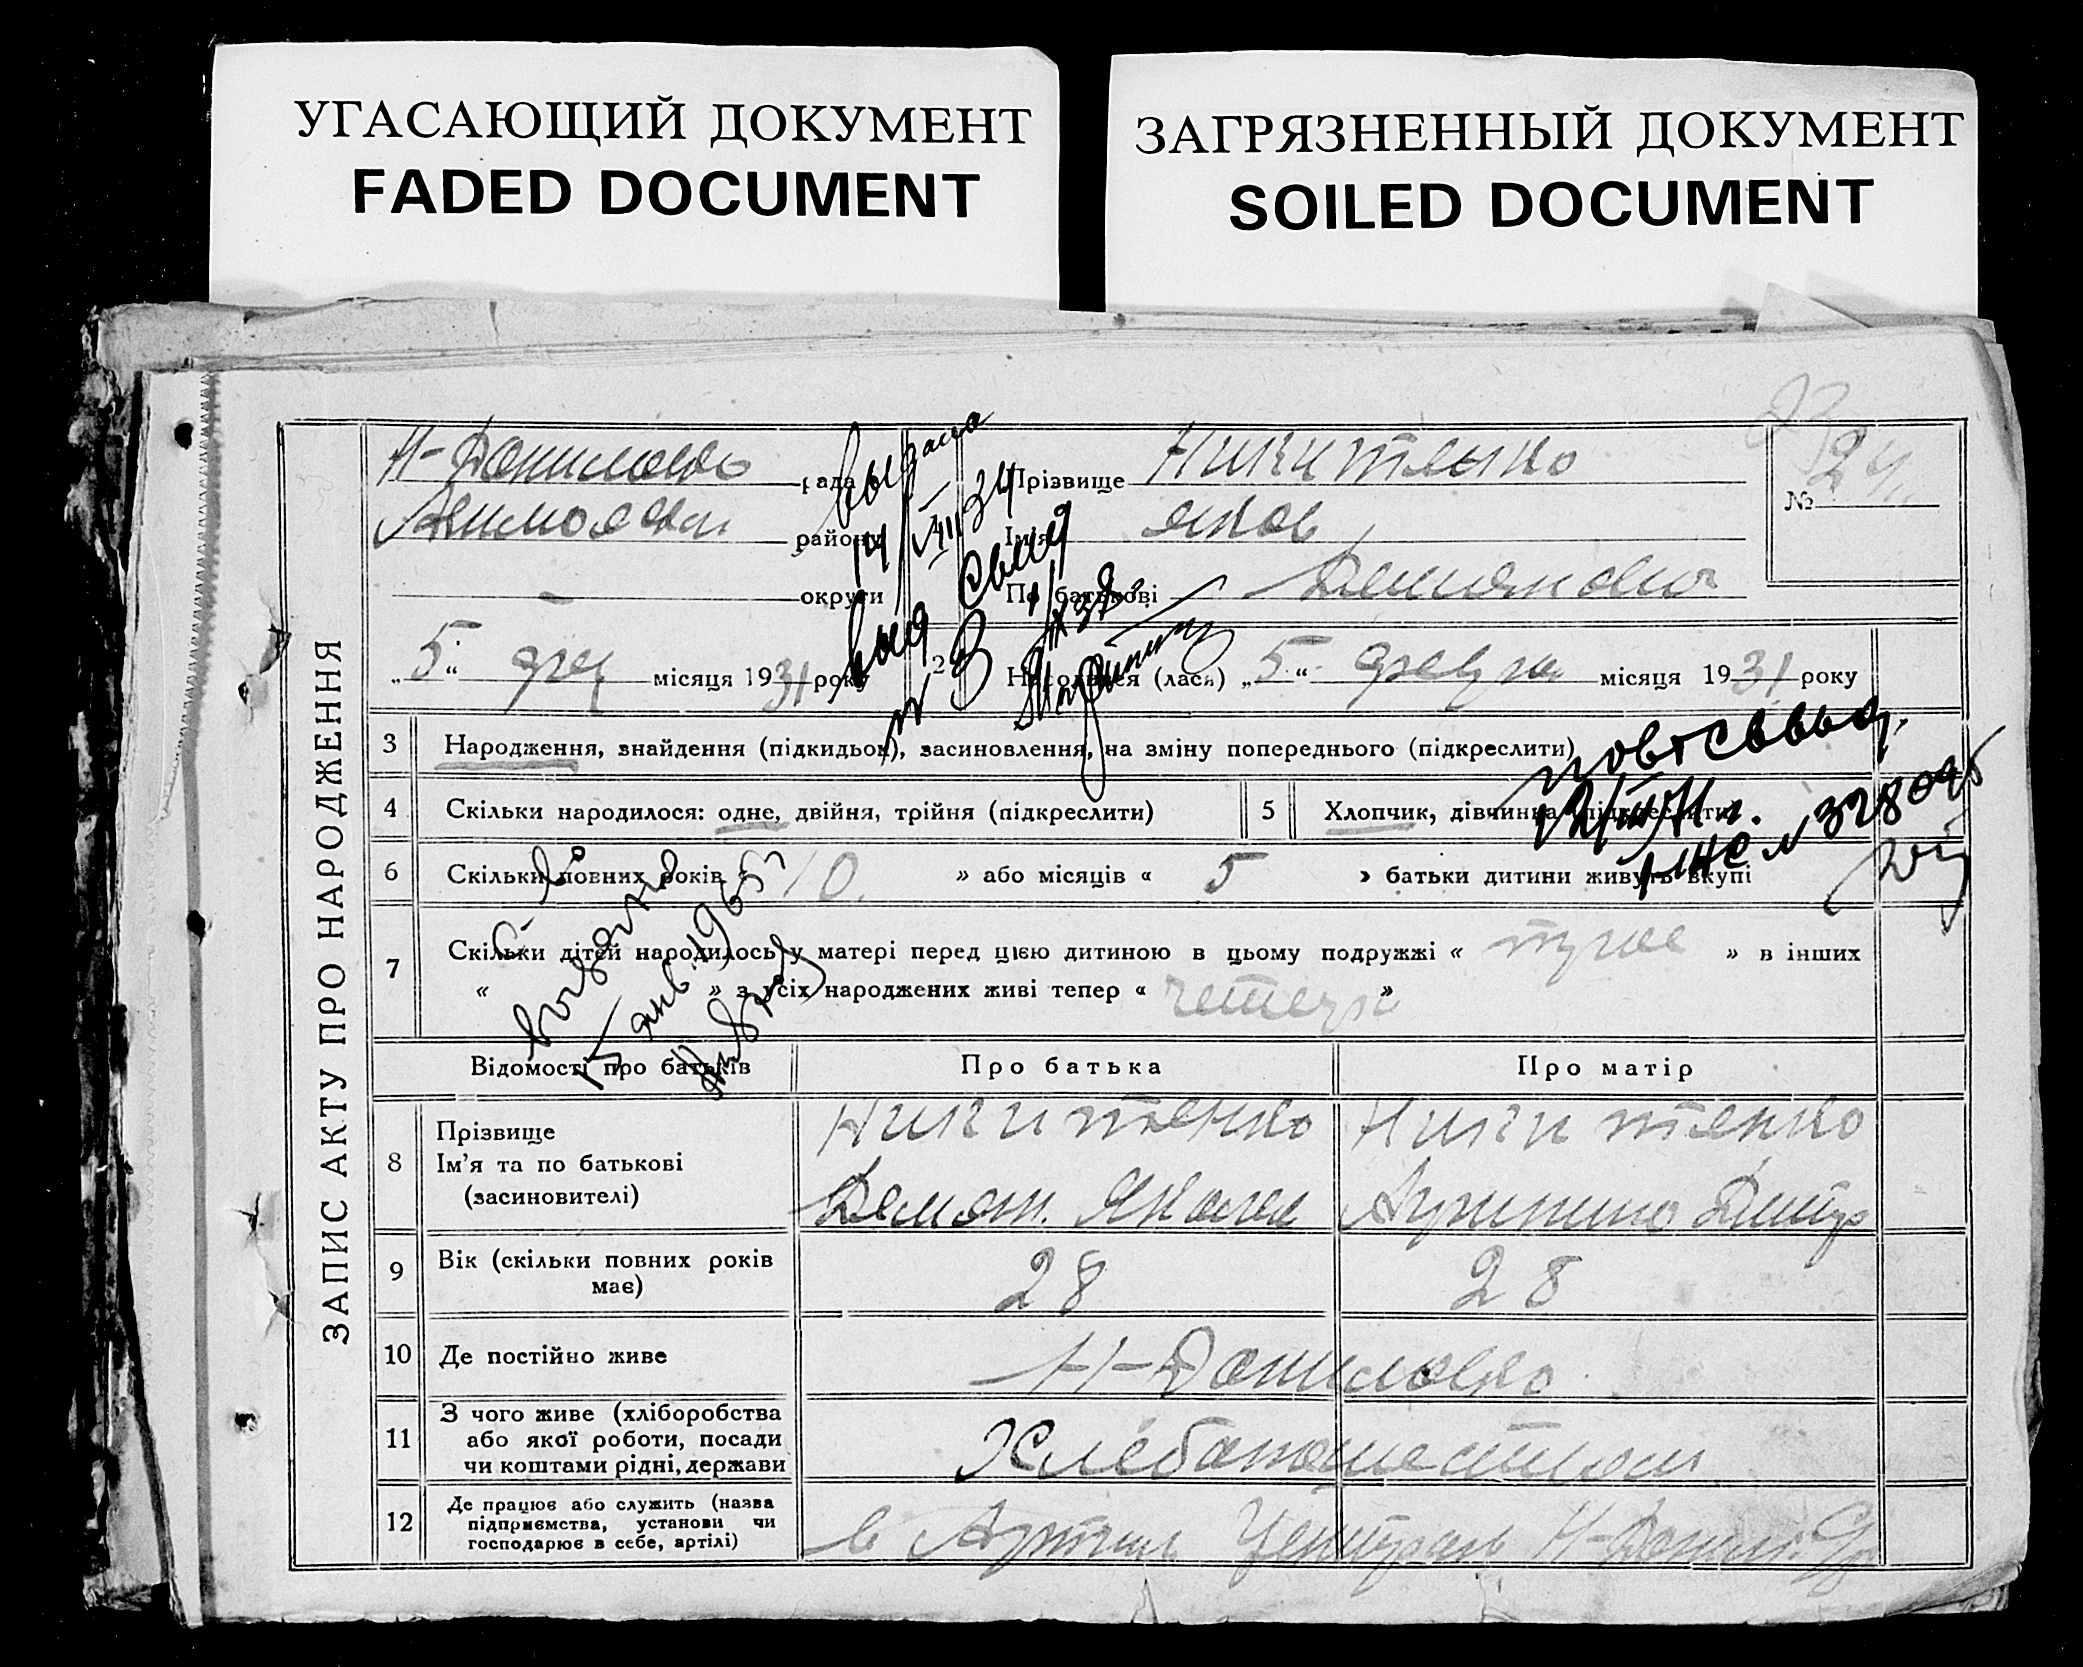 УГАСАЮЩИЙ ДОКУМЕНТ
FADED DOCUMENT
ЗАГРЯЗНЕННЫЙ ДОКУМЕНТ
SOILED DOCUMENT
ЗАПИС АКТУ ПРО НАРОДЖЕННЯ
Н-Даниловка рада
району
округи
Прізвище Никитенко
Ім'я Яков
По батькові Демьянович
№ 24
„5“ фев місяця 1931 року
2 Народився (лася) „5“ февр місяця 1931 року
3 Народження, знайдення (підкидьок), засиновлення, на зміну попереднього (підкреслити)
4 Скільки народилося: одне, двійня, трійня (підкреслити)
5 Хлопчик, дівчинка (підкреслити)
6 Скільки повних років « 10 » або місяців « 5 » батьки дитини живуть вкупі
7 Скільки дітей народилось у матері перед цією дитиною в цьому подружжі « трое » в інших
« » з усіх народжених живі тепер « четверо »
Відомості про батьків
Про батька
Про матір
8 Прізвище
Ім'я та по батькові
(засиновителі)
Никитенко
Демян. Яковл
Никитенко
9 Вік (скільки повних років має)
28
28
10 Де постійно живе
Н-Даниловка
11 З чого живе (хліборобства
або якої роботи, посади
чи коштами рідні, держави
Хлебопашеством
12 Де працює або служить (назва
підприємства, установи чи
господарює в себе, артілі)
в Артиль
выдана
14/VIII 34
выдано
5 янв. 1965
№ 328096